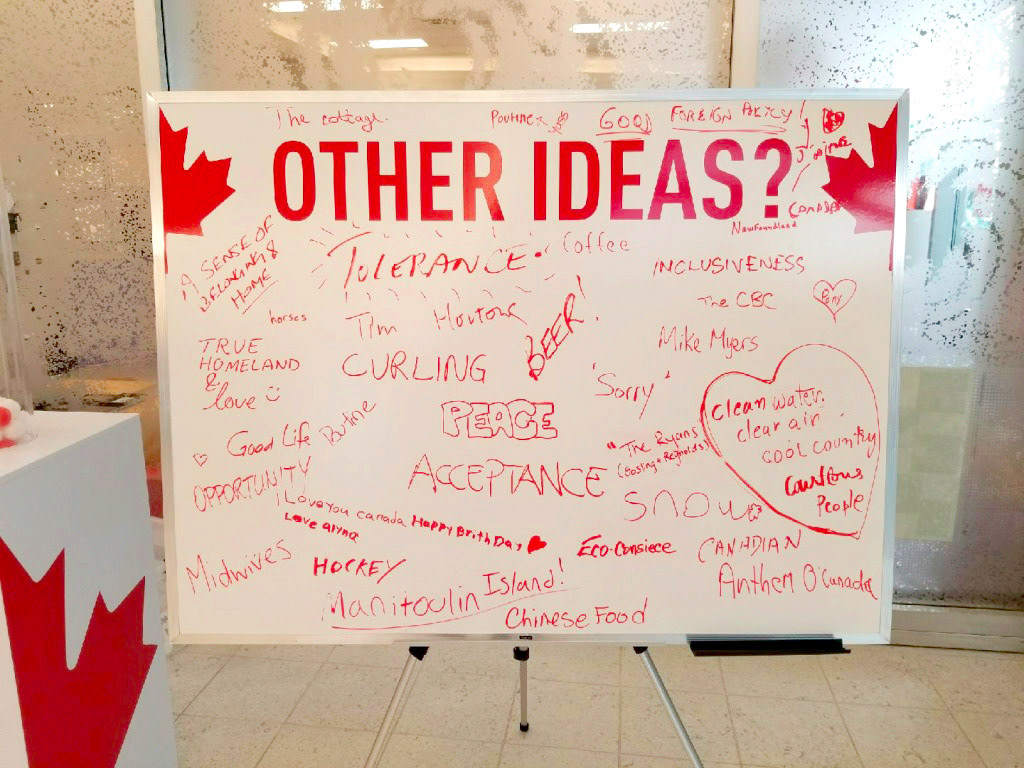 The cottage.
Poutine
GOOD FOREIGN POLICY!
OTHER IDEAS?
Newfoundland
A SENSE OF
BELONGING &
HOME
TOLERANCE.
Coffee
INCLUSIVENESS
horses
Tim Hortons
BEER!
The CBC
TRUE
HOMELAND
&
love
CURLING
Mike Myers
'Sorry'
Good Life
Poutine
PEACE
"The Ryans
(Gosling + Reynolds)
clean water,
clear air
cool country
People
OPPORTUNITY
ACCEPTANCE
SNOW
I Love you canada Happy Brith Day
Love alyna
Midwives
HOCKEY
Eco-Consiece
CANADIAN
Anthem O'Canada
Manitoulin Island!
Chinese Food